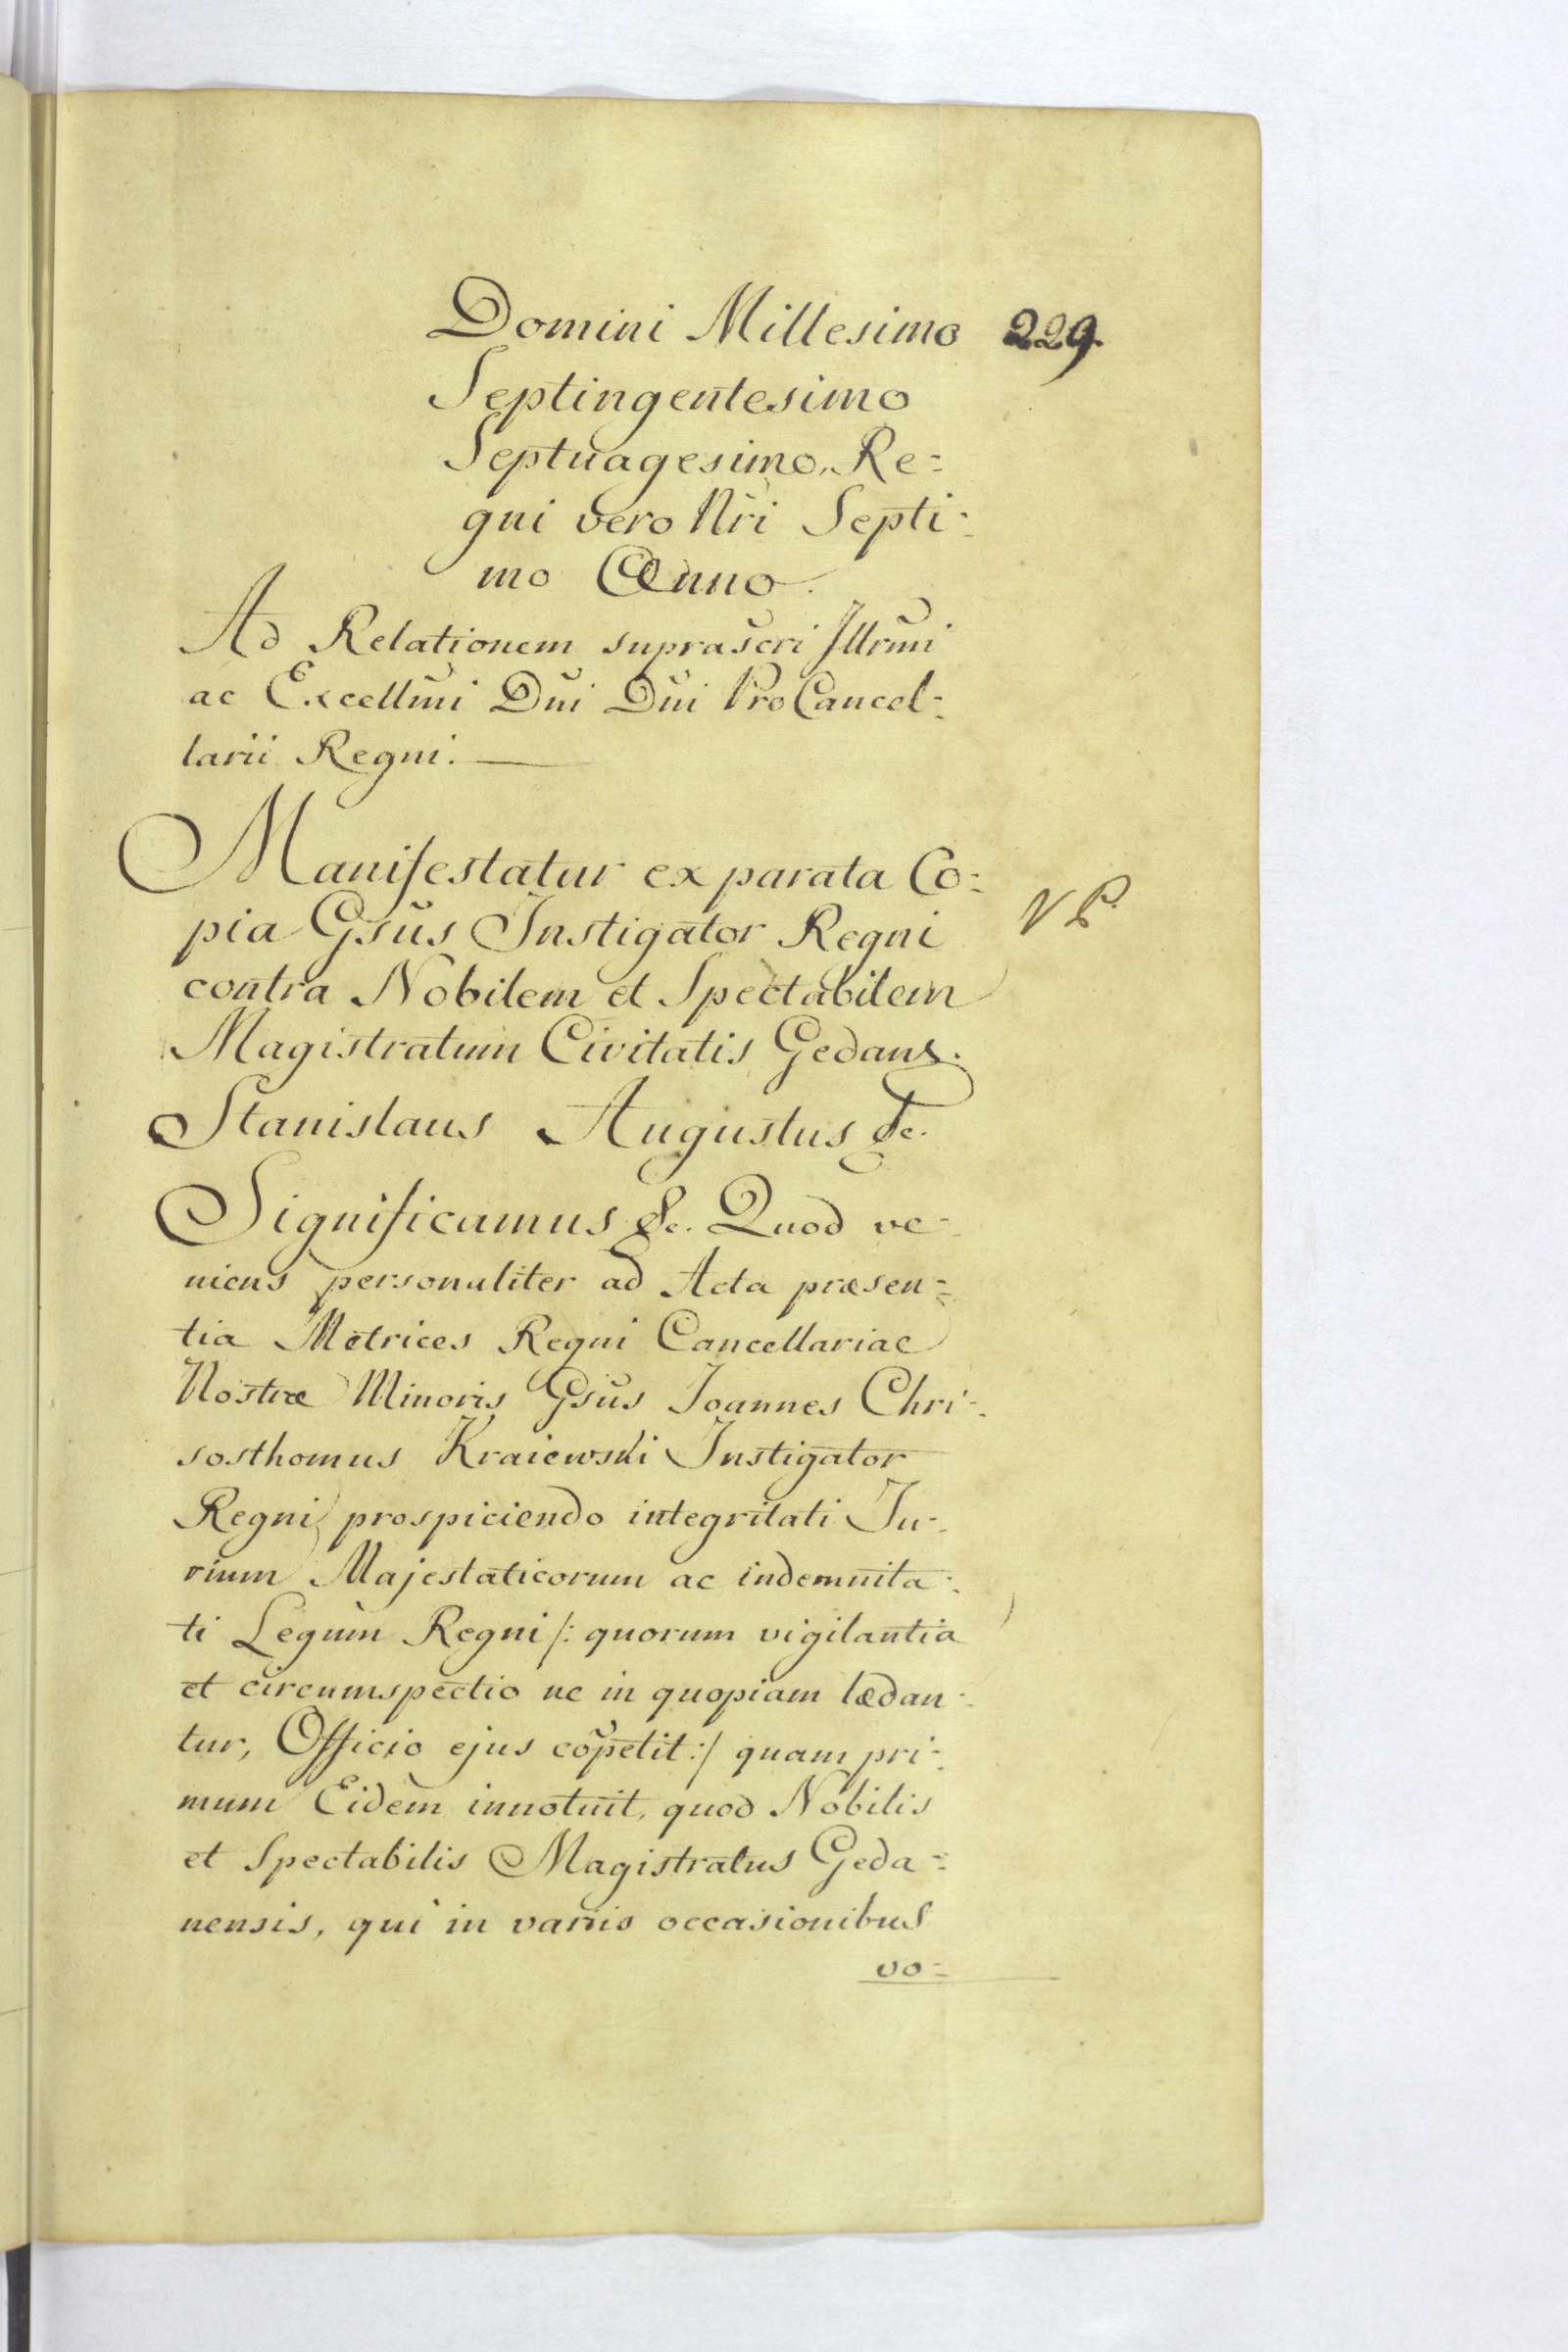 Domini Millesimo 229.
Septingentesimo
Septuagesimo, Re=
gni vero Nri Septi=
mo Anno.
Ad Relationem suprascri Illrmi
ac Excellmi Dni Dni ProCancel=
larii Regni.
Manifestatur ex parata Co=
pia Gsus Instigator Regni
contra Nobilem et Spectabilem
Magistratum Civitatis Gedans.
Stanislaus Augustus &c.
Significamus &c. Quod ve=
niens personaliter ad Acta præsen=
tia Metrices Regni Cancellariae
Nostræ Minoris Gsus Joannes Chri=
sosthomus Kraiewski Instigator
Regni prospiciendo integritati Ju=
rium Majestaticorum ac indemnita=
ti Legum Regni /: quorum vigilantia
et circumspectio ne in quopiam lædan=
tur, Officio ejus cõpetit :/ quam pri=
mum Eidem innotuit, quod Nobilis
et Spectabilis Magistratus Geda=
nensis, qui in variis occasionibus
vo=